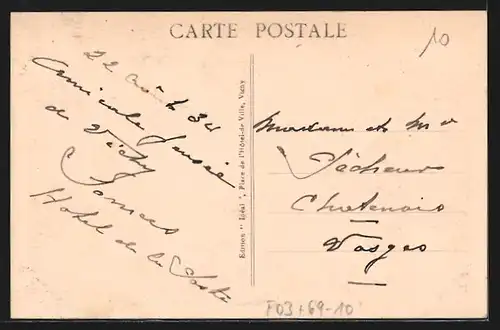 CARTE POSTALE
10
22 août 34
Amicale pensée
de Vichy
Hotel de la Poste
Edition " Idéal ", Place de l'Hôtel-de Ville, Vichy
Madame et Mr
Pêcheur
Chatenois
Vosges
F03+69-10